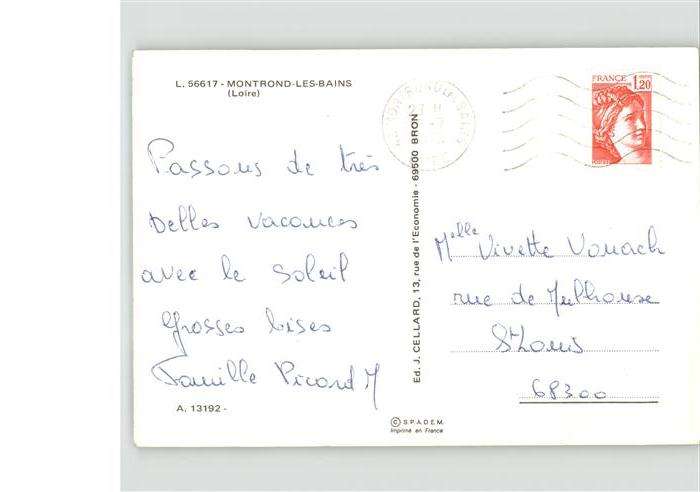 L. 56617 - MONTROND-LES-BAINS
(Loire)
FRANCE 1,20
Passons de très
belles vacances
avec le soleil
Grosses bises
Famille Picard M
A. 13192 -
Ed. J. CELLARD, 13, rue de l'Economie - 69500 BRON
Melle Vivette Vonach
rue de Mulhouse
St Louis
68300
© S.P.A.D.E.M.
Imprimé en France